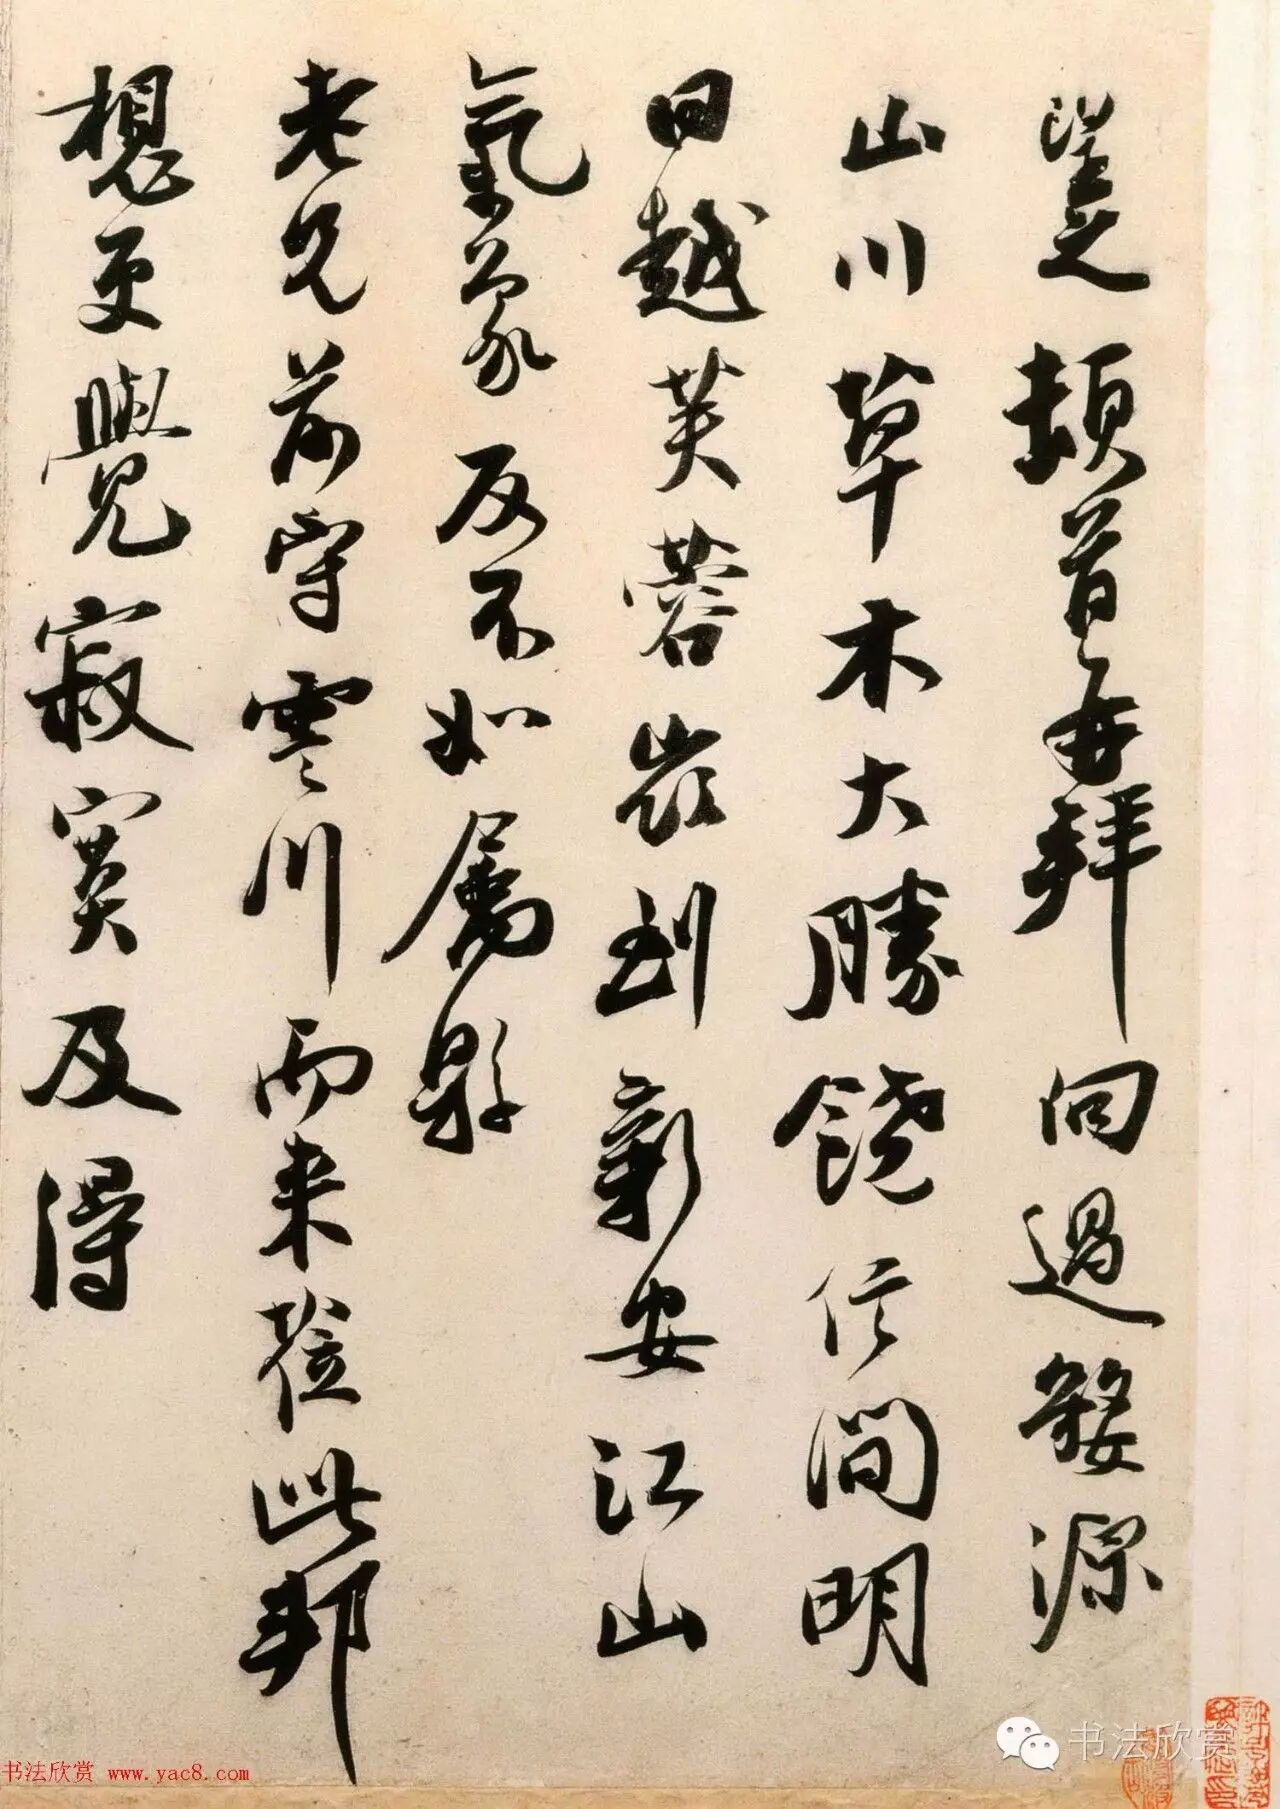 望之頓首再拜向過婺源
山川草木大勝饒信間明
日越芙蓉嶺到新安江山
氣象反不如屬縣
老兄前守雪川而來蒞此邦
想更覺寂寞及得
书法欣赏
书法欣赏 www.yac8.com